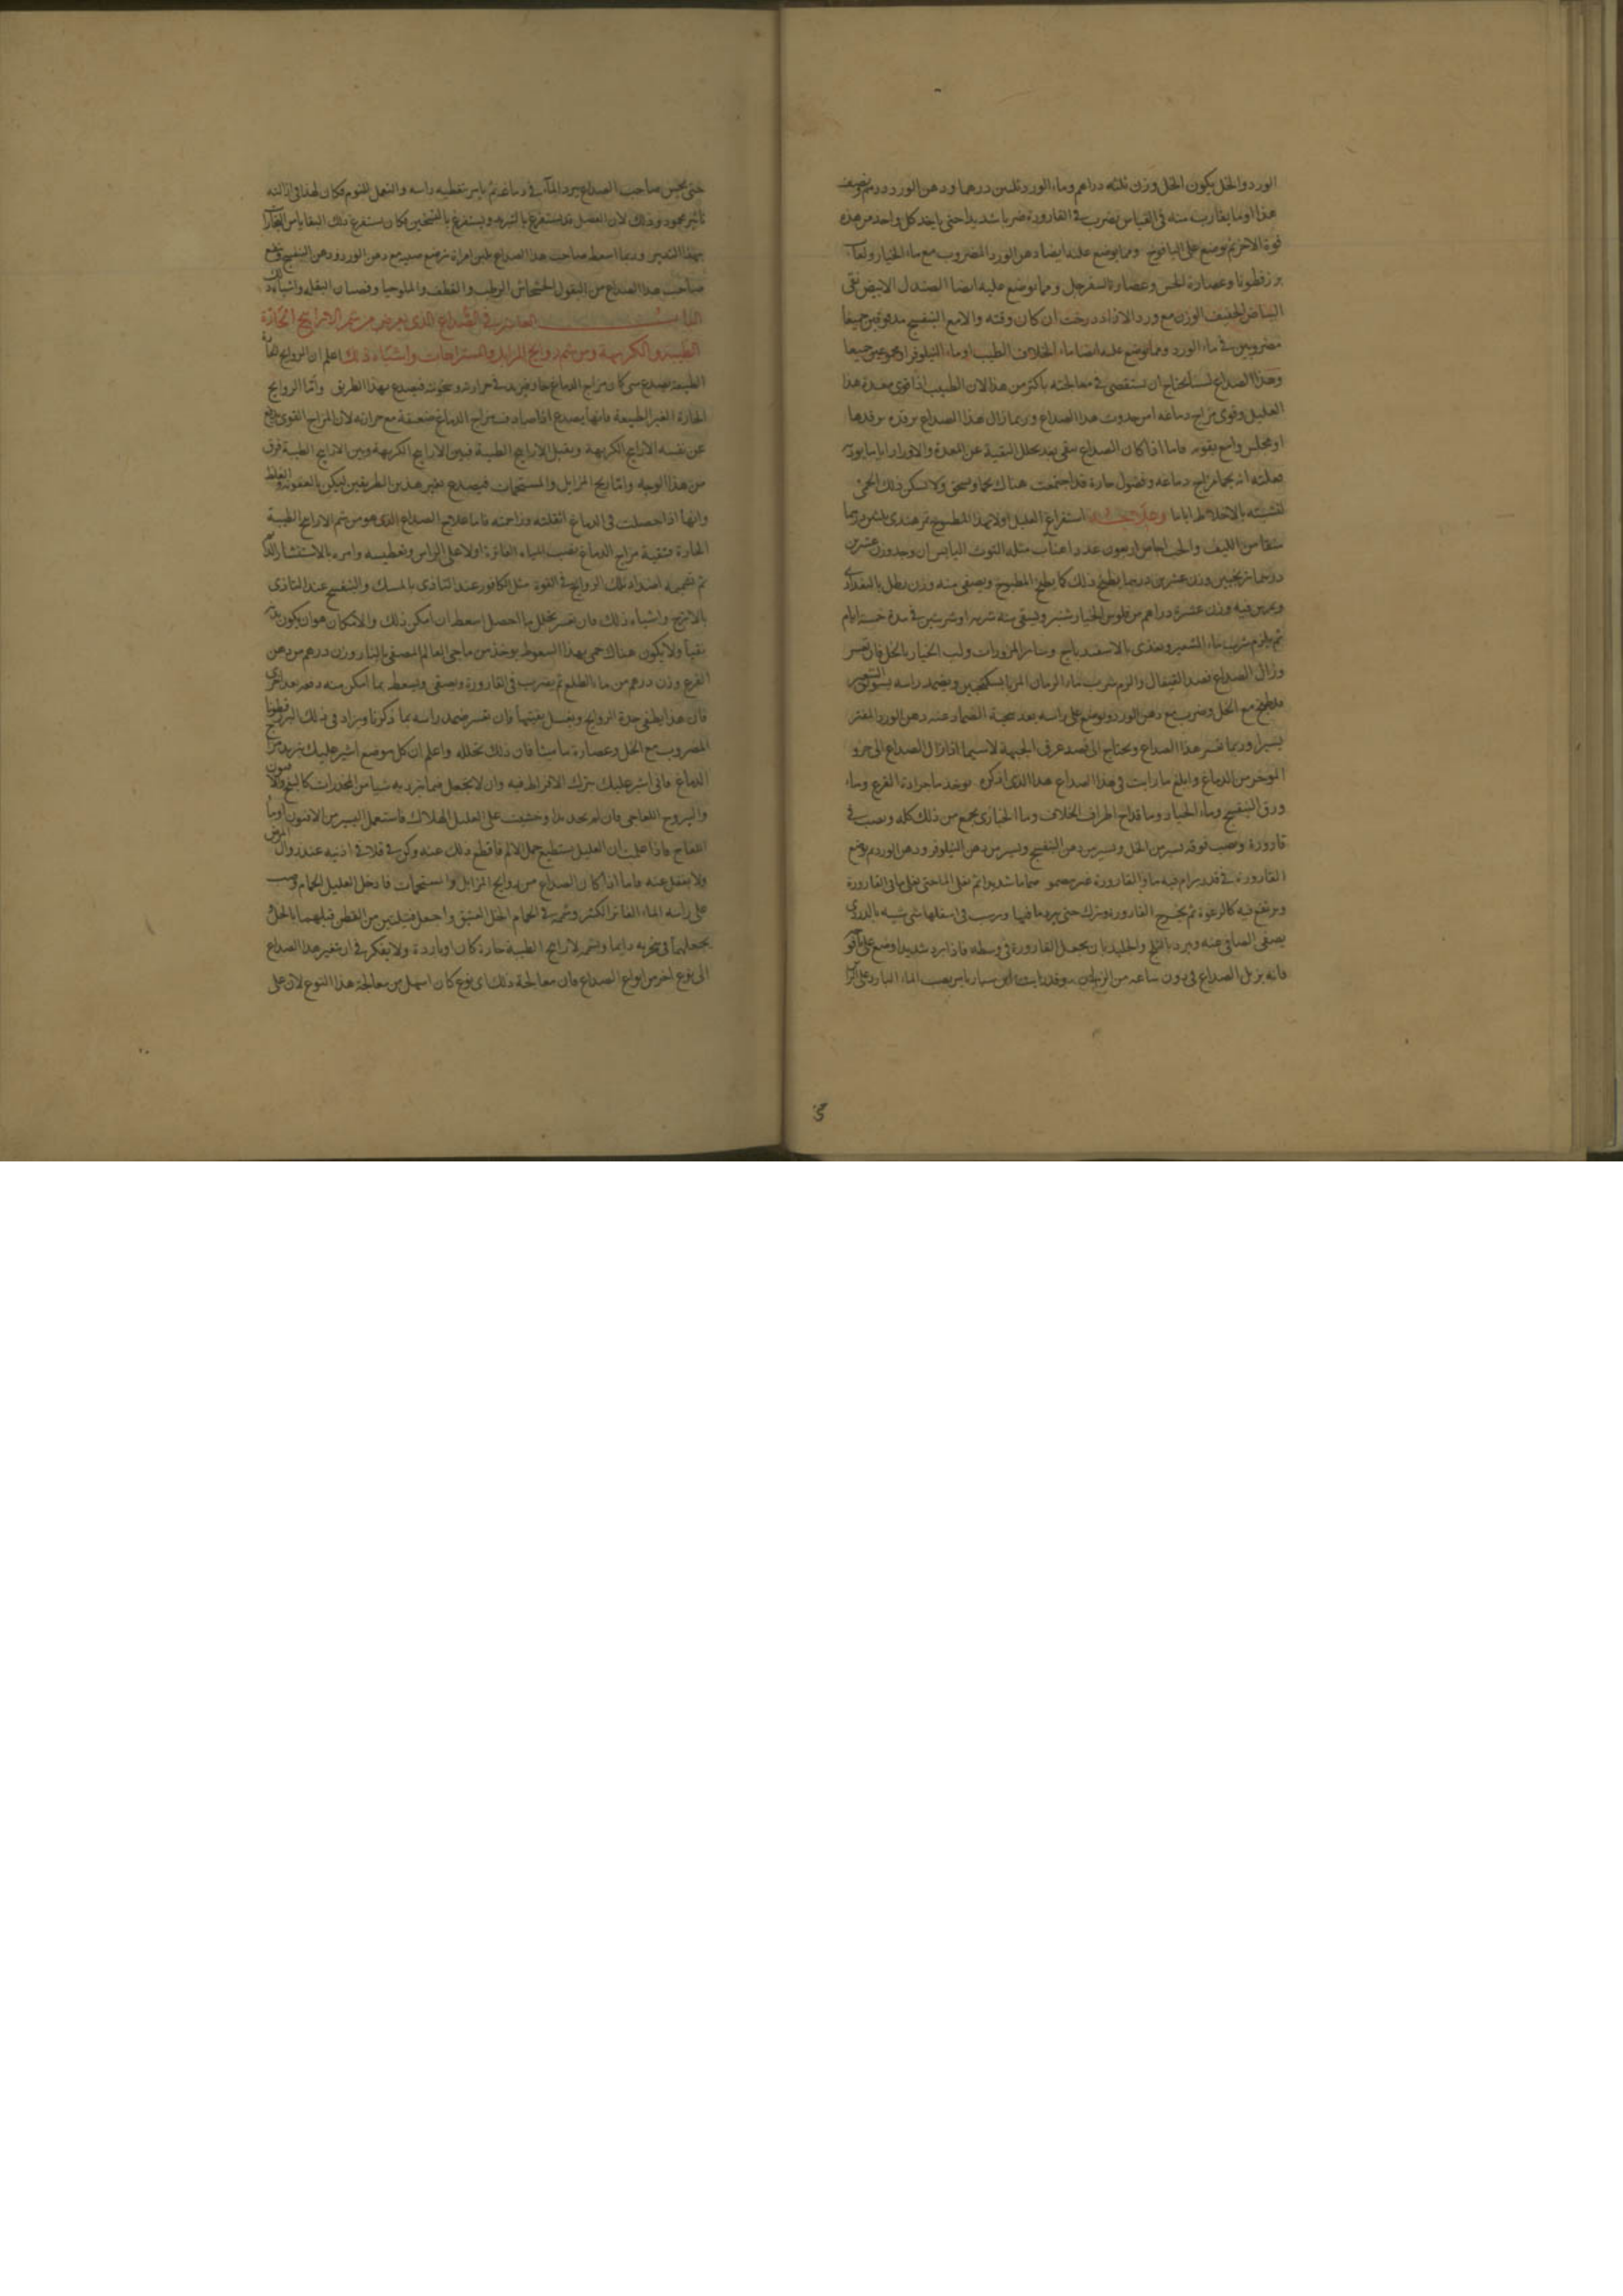 الورد والخل يكون الخل وزن ثلثه دراهم وماء الورد ثلثين درهما ودهن الورد درهم ونصف
هذا او ما يقارب منه فى القياس يضرب فى القارورة ضربا شديدا حتى ياخذ كل واحد من هذه
قوة الاخر ثم يوضع على اليافوخ ومما يوضع عليه ايضا دهن الورد المضروب مع ماء الخيار ولعاب
بزرقطونا وعصارة الخس وعصارة السفرجل ومما يوضع عليه ايضا الصندل الابيض نقى
البياض الخفيف الوزن مع ورد الازاددرخت ان كان وقته والا مع البنفسج مدقوقين جميعا
مضروبين فى ماء الورد ومما يوضع عليه ايضا ماء الخلاف الطيب او ماء النيلوفر او مجموعين جميعا
وهذا الصداع لسنا نحتاج ان نستقصى فى معالجته باكثر من هذا لان الطبيب اذا قوى معدة هذا
العليل وقوى مزاج دماغه امن حدوث هذا الصداع وربما زال هذا الصداع برقده يرقدها
او مجلس واسع يقوم فاما اذا كان الصداع يبقى بعد تحلل البقية عن المعدة والادرار اياما بايونه
فعلته انه يحما مزاج دماغه وفضول حارة قد اجتمعت هناك يحما ويسخن ولا تسكن ذلك الحمى
لتشبثه بالاخلاط اياما وعلاجه استفراغ العليل اولا بهذا المطبوخ تمرهندى ثلثين درهما
منقا من الليف والحب اجاص اربعون عددا عناب مثله التوت اليابس ان وجد وزن عشرين
درهما ترنجبين وزن عشرين درهما يطبخ ذلك كما يطبخ المطبوخ ويصفى منه وزن رطل بالبغدادى
ويمرس فيه وزن عشرة دراهم من فلوس الخيارشنبر ويسقى منه شربة او شربتين فى مدة خمسة ايام
ثم يلزم شرب ماء الشعير ويغذى بالاسفندباج وساير المزورات ولب الخيار بالخل فان تغير
وزال الصداع فصد القيفال والزم شرب ماء الرمان المز بالسكنجبين ويضمد راسه بسويق الشعير
مطبوخ مع الخل وضرب مع دهن الورد ويوضع على راسه بعد تنحية الضماد عنه دهن الورد المفتر
يسيرا وربما تغير هذا الصداع ويحتاج الى فصد عرق الجبهة لاسيما اذا زال الصداع الى جزو
الموخر من الدماغ وابلغ ما رايت فى هذا الصداع هذا الذى اذكره يوخذ ماء جرادة القرع وماء
ورق البنفسج وماء الخيار وماء قداح اطراف الخلاف وماء الخبازى يجمع من ذلك كله ويصب فى
قارورة ويصب فوقه يسير من الخل ويسير من دهن البنفسج ويسير من دهن النيلوفر ودهن الورد ثم يوضع
القارورة فى قدر برام فيه ماء والقارورة غير مصمومة صماما شديدا ثم يغلى الماء حتى يغلى ما فى القارورة
ويرتفع فيه كالرغوة ثم يخرج القارورة ويترك حتى يبرد ما فيها ويرسب فى اسفلها شى شبيه بالدردى
يصفى الصافى عنه ويبرد بالثلج والجليد بان يجعل القارورة فى وسطه فاذا برد شديدا وضع على اليافوخ
فانه يزيل الصداع فى دون ساعه من الزمان وقد رايت ابن سيار يامر بصب الماء البارد على الراس
حتى يحس صاحب الصداع ببرد الماء فى دماغه ثم يامر بتغطية راسه والتعمل للنوم فكان لهذا فى ازالته
تاثير محمود وذلك لان الفضل قد يستفرغ بالتبريد ويستفرغ بالتسخين فكان يستفرغ تلك البقايا من البخارات
بهذا التدبير وربما اسعط صاحب هذا الصداع بلبن امراة ترضع صبية مع دهن الورد ودهن البنفسج
صاحب هذا الصداع من البقول الخشخاش الرطب والقطف والملوخيا وقضبان البقله واشباه ذلك
الباب العاشر فى الصداع الذى يعرض من شم الاراييح الحارة
الطيبة والكريهة ومن شم روايح المزابل والمستراحات واشباه ذلك اعلم ان الروايح الحارة
الطيبة يصدع متى كان مزاج الدماغ حارا يزيد فى حرارته وسخونته فيصدع بهذا الطريق واما الروايح
الحارة الغير الطيبة فانها يصدع اذا صادف مزاج الدماغ ضعيفة مع حرارته لان المزاج القوى يدفع
عن نفسه الاراييح الكريهة ويقبل الاراييح الطيبة فبين الاراييح الكريهة وبين الاراييح الطيبة فرق
من هذا الوجه واما ريح المزابل والمستحمات فيصدع بغير هذين الطريقين لكن بالعفونة والغلظ
وانها اذا حصلت فى الدماغ اثقلته وزاحمته فاما علاج الصداع الذى هو من شم الاراييح الطيبة
الحارة فتنقية مزاج الدماغ بصب المياه الفاترة اولا على الراس وتعطيسه وامره بالاستنشاق
ثم تشميمه اضداد تلك الروايح فى القوة مثل الكافور عند التاذى بالمسك والبنفسج عند التاذى
بالاترج واشباه ذلك فان تغير بتحلل ما حصل اسعط ان امكن ذلك والامكان هو ان يكون بدنه
نقيا ولا يكون هناك حمى بهذا السعوط يوخذ من ماء حى العالم المصفى بالنار وزن درهم من دهن
القرع وزن درهم من ماء الطلع ثم يضرب فى القارورة ويصفى ويسعط بما امكن منه دفعه بعد اخرى
فان هذا يطفى حدة الروايح ويغسل بقيتها فان تغير ضمد راسه بما ذكرنا ويزاد فى ذلك البزرقطونا
المضروب مع الخل وعصارة ماميثا فان ذلك يحلله واعلم ان كل موضع اشير عليك بتبريد مزاج
الدماغ فانى اشير عليك بترك الافراط فيه وان لا تجعل فيما تبرد به شيا من المخدرات كالبنج والافيون
واليبروح اللفاحى فان لم تجد بدا وخشيت على العليل الهلاك فاستعمل اليسير من الافيون او ماء
اللفاح فاذا علمت ان العليل يستطيع حمل الالم فاقطع ذلك عنه وكن فى قلاق اذنيه عند زوال المرض
ولا يغفل عنه فاما اذا كان الصداع من روايح المزابل والمستحمات فادخل العليل الحمام وصب
على راسه الماء الفاتر الكثير وشمه فى الحمام الخل العتيق واجعل فتيلتين من القطن قبلهما بالخل
يجعلهما فى منخريه دايما ويشم الاراييح الطيبة حارة كان او باردة ولا يفكر فى ان تغير هذا الصداع
الى نوع اخر من انواع الصداع فان معالجة ذلك اى نوع كان اسهل من معالجة هذا النوع لان على